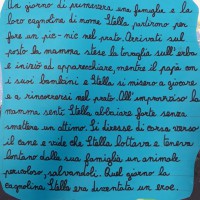 Un giorno di primavera una famiglia e la
loro cagnolina di nome Stella partirono per
fare un pic-nic nel prato. Arrivati sul
posto la mamma stese la tovaglia sull'erba
e iniziò ad apparecchiare, mentre il papà con
i suoi bambini e Stella si misero a giocare
e a rincorrersi nel prato. All'improvviso la
mamma sentì Stella abbaiare forte senza
smettere un attimo. Si diresse di corsa verso
il cane e vide che Stella lottava e teneva
lontano dalla sua famiglia un animale
pericoloso, salvandoli. Quel giorno la
cagnolina Stella era diventata un eroe.